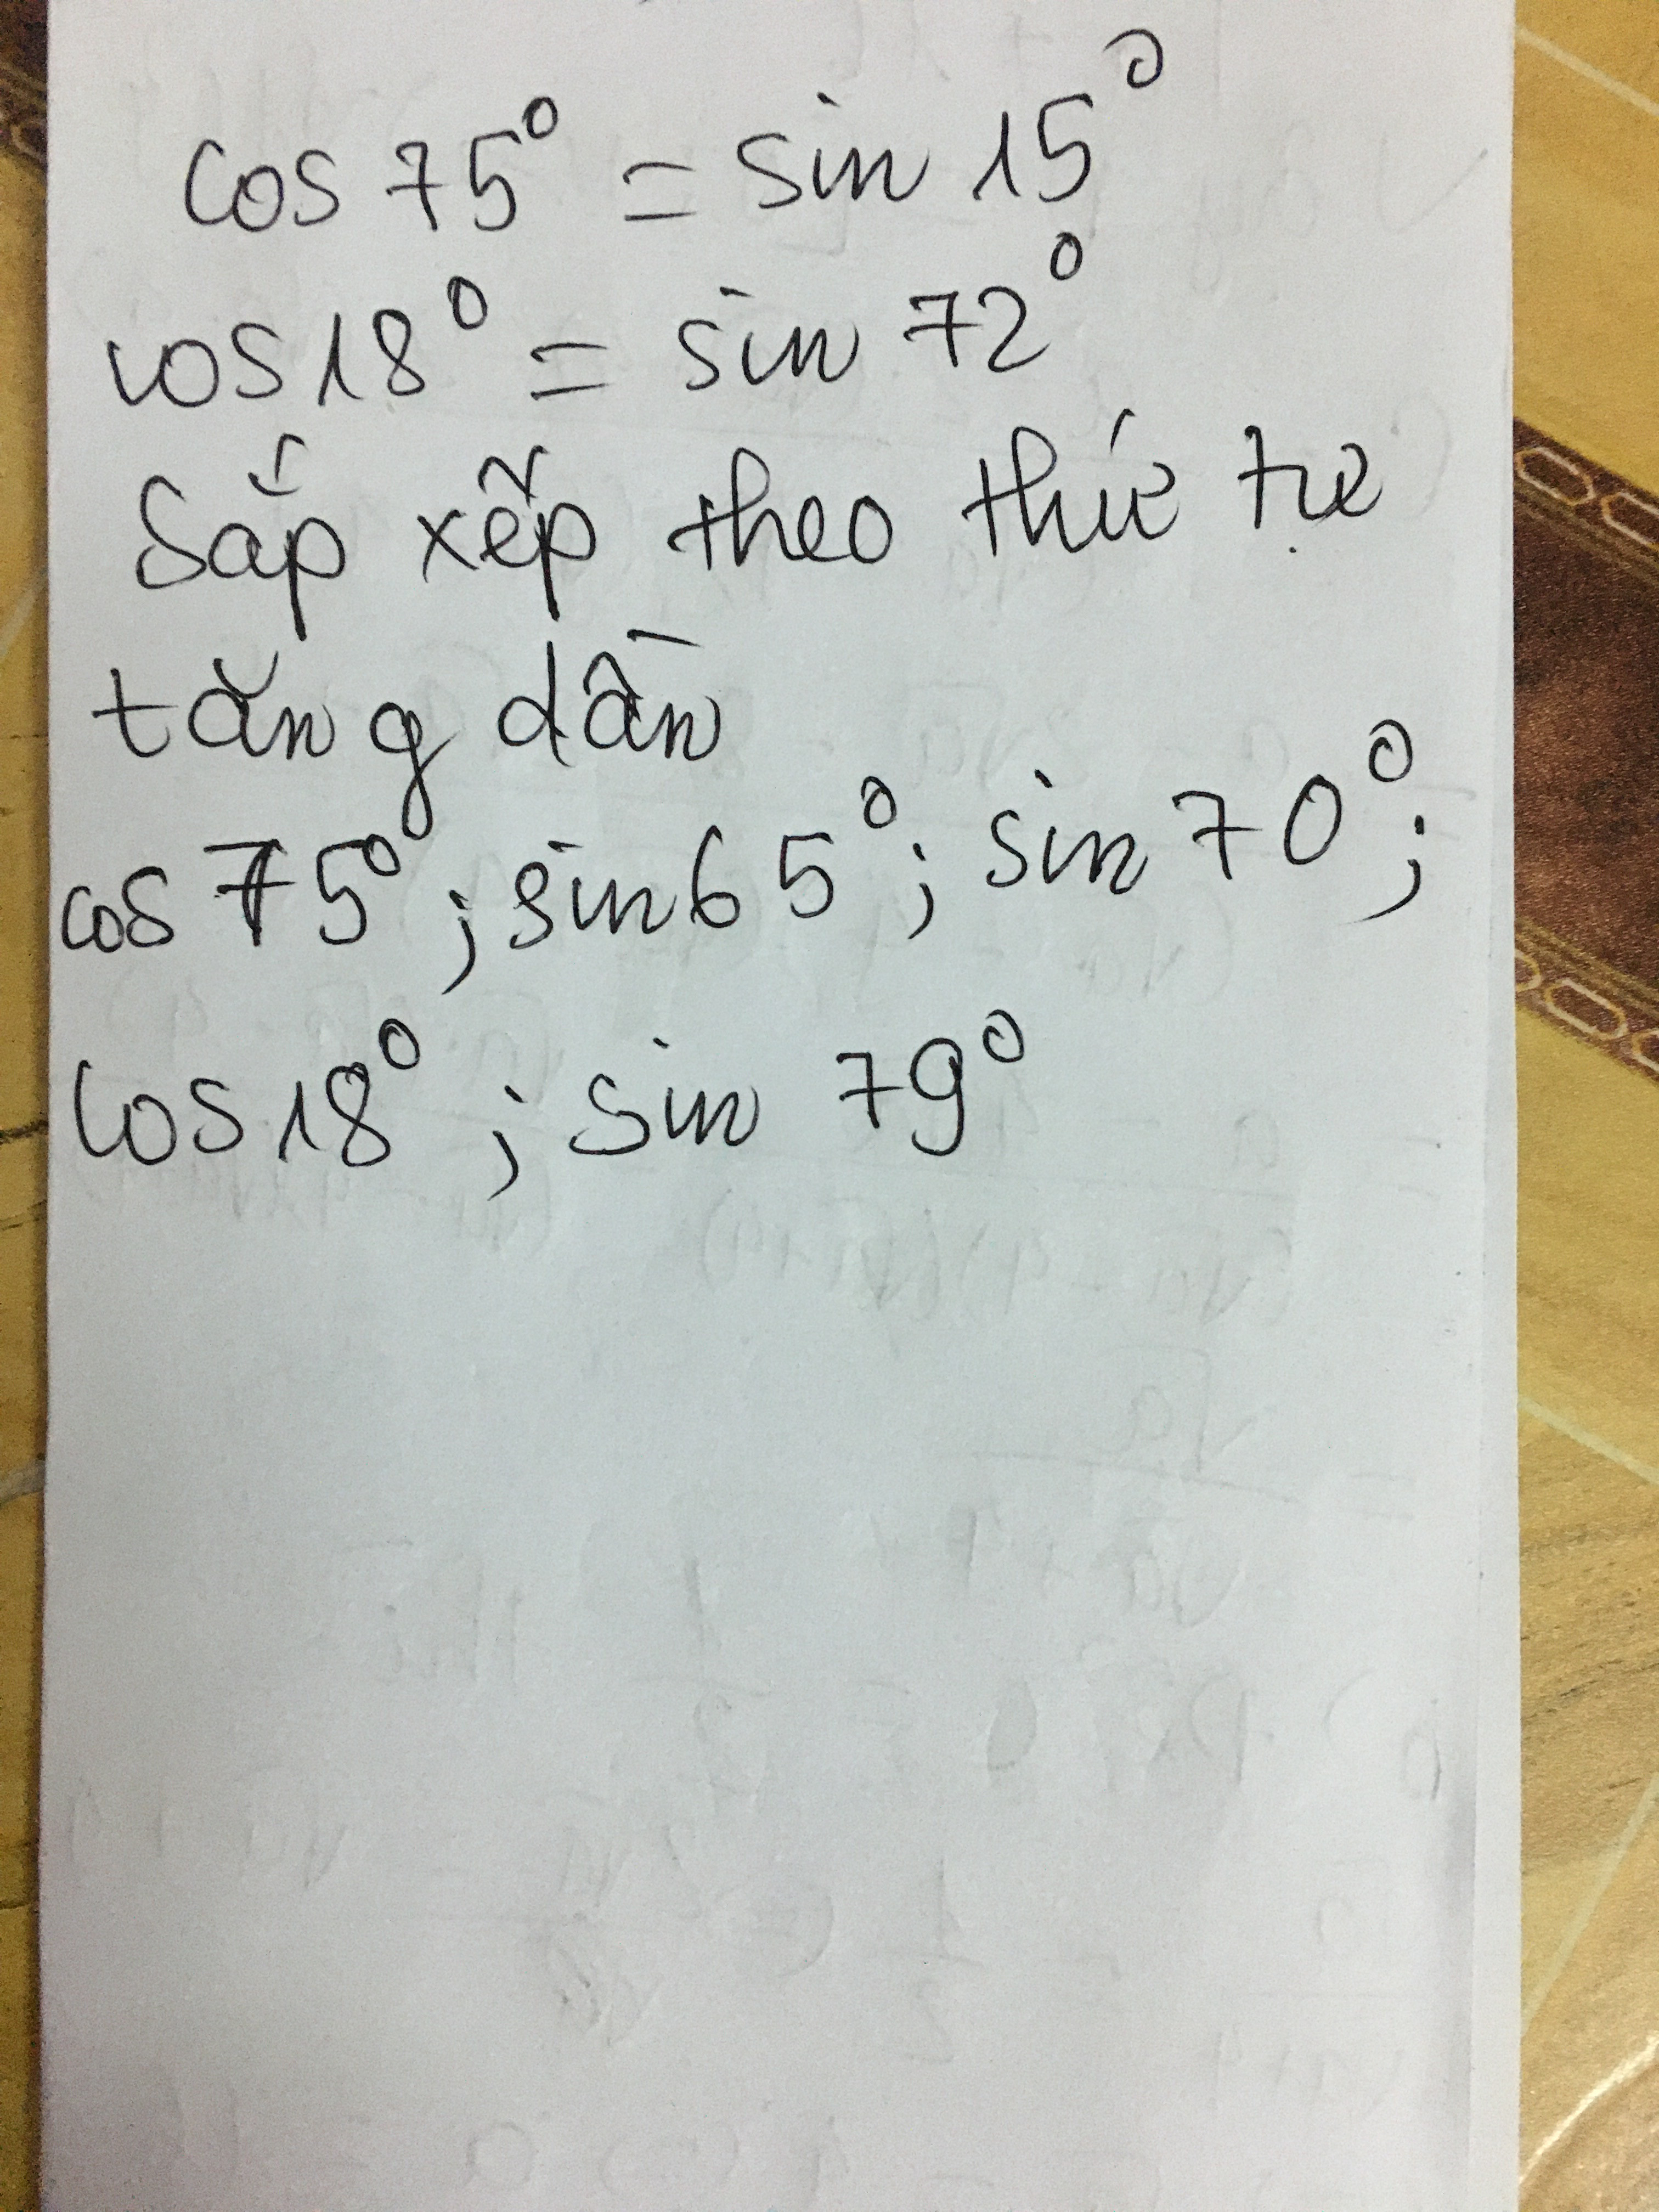 cos 75° = sin 15°
cos 18° = sin 72°
Sắp xếp theo thứ tự
tăng dần
cos 75°; sin 65°; sin 70°;
cos 18°; sin 79°